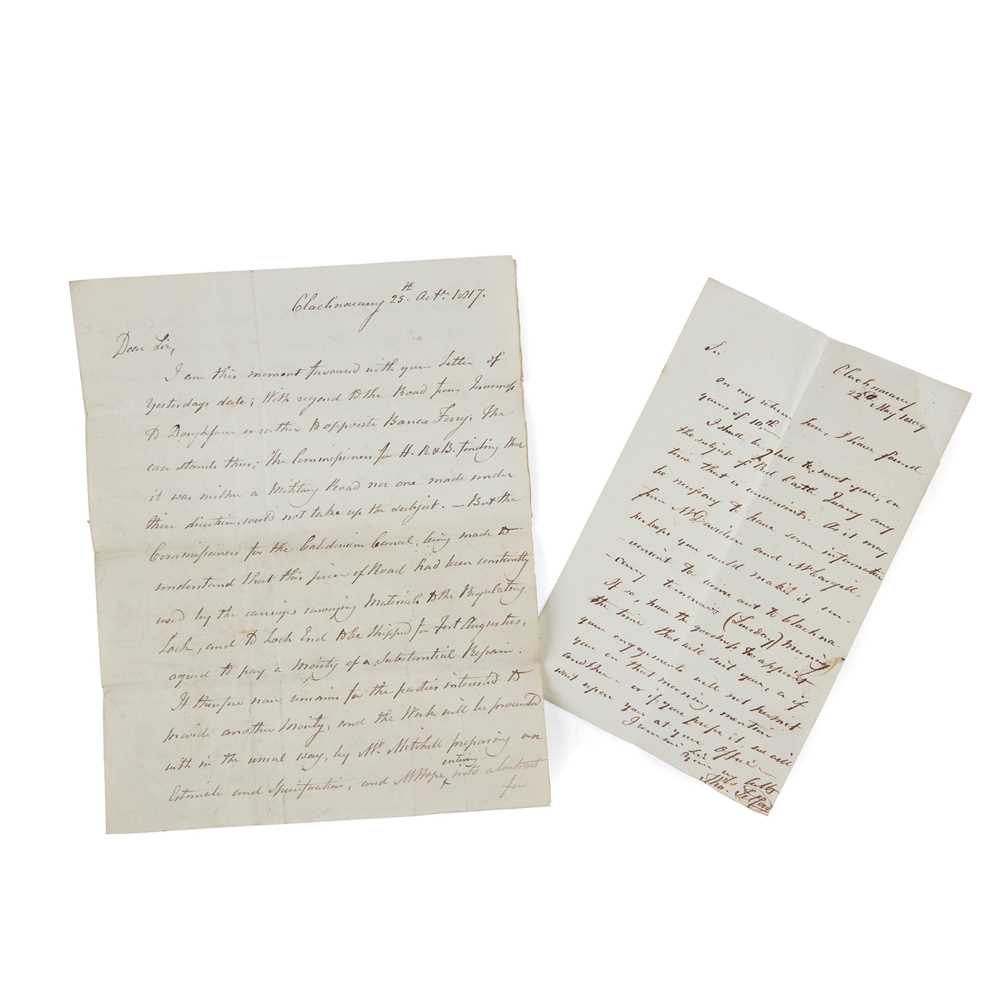 Clachnacarry 25th Octr. 1817.
Dear Sir,
I am this moment favoured with your Letter of
Yesterdays date; With regard to the Road from Inverness
to Dochfour or rather to opposite Bona Ferry. The
case stands thus; The Commissioners for H. R & B. finding that
it was neither a Military Road nor one made under
their direction, would not take up the subject. — But the
Commissioners for the Caledonian Canal, being made to
understand that this piece of Road had been constantly
used by the carriages carrying Materials to the Regulating
Lock, and to Loch End to be shipped for Fort Augustus,
agreed to pay a Moiety of a Substantial Repair.
It therefore now remains for the parties interested to
provide another Moiety, and the Work will be proceeded
with in the usual way, by Mr. Mitchell preparing an
Estimate and Specification, and Mr Hope entering into a Contract
for
Clachnacarry
22d May
Sir
here, I have found
on my return
yours of 10th
I shall be glad to meet you, on
the subject of Red Castle Quarry any
time that is convenient. As it may
be necessary to have some information
from Mr Davidson and Mr Cargill
perhaps you could make it con-
-venient to come out to Clachna
-carry tomorrow (Tuesday) Morning
If so, have the goodness to appoint
the time that will suit you, or if
your engagements will not permit
you on that morning, mention
another or if you prefer it we will
wait upon you at your Office
I
Sir
Tho. Telford